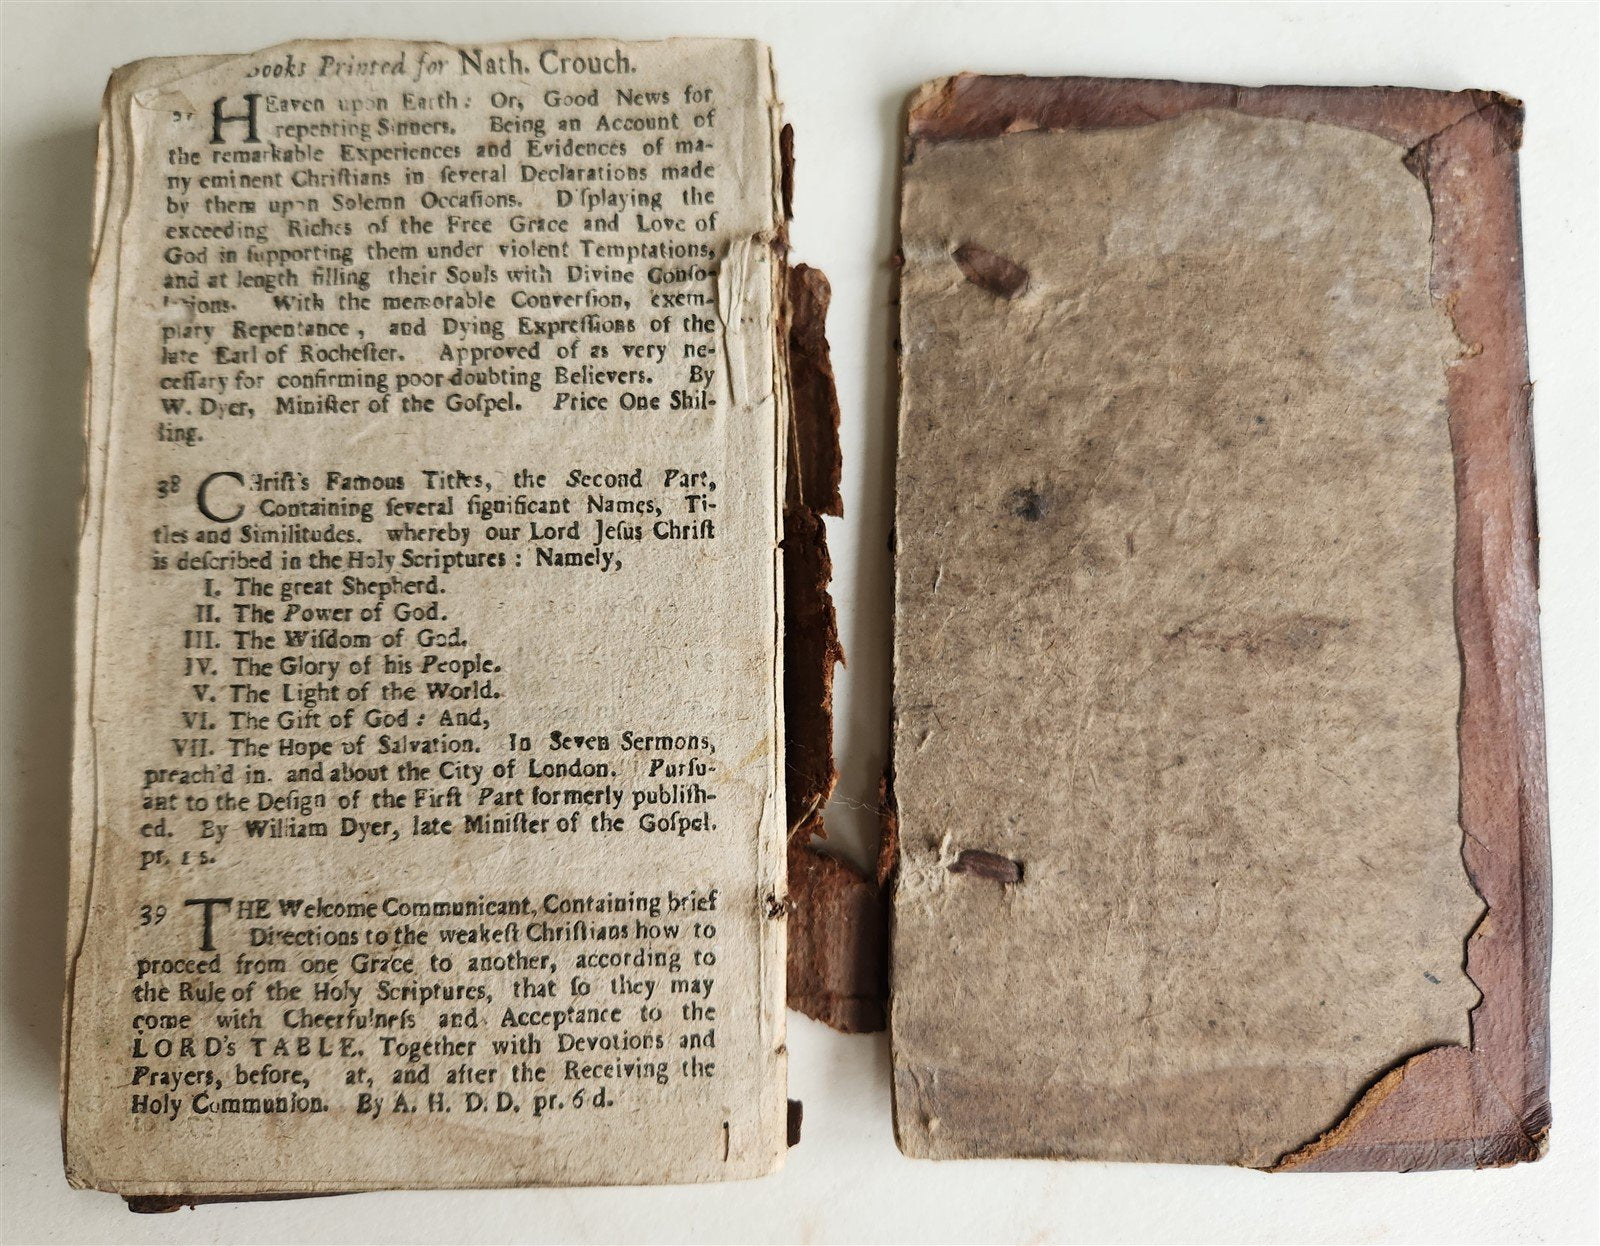 Books Printed for Nath. Crouch.
HEaven upon Earth: Or, Good News for
repenting Sinners. Being an Account of
the remarkable Experiences and Evidences of ma-
ny eminent Chriſtians in ſeveral Declarations made
by them upon Solemn Occaſions. Diſplaying the
exceeding Riches of the Free Grace and Love of
God in ſupporting them under violent Temptations,
and at length filling their Souls with Divine Conſo-
lations. With the memorable Converſion, exem-
plary Repentance, and Dying Expreſſions of the
late Earl of Rocheſter. Approved of as very ne-
ceſſary for confirming poor doubting Believers. By
W. Dyer, Miniſter of the Goſpel. Price One Shil-
ling.
38 Chriſt's Famous Titles, the Second Part,
Containing ſeveral ſignificant Names, Ti-
tles and Similitudes. whereby our Lord Jeſus Chriſt
is deſcribed in the Holy Scriptures: Namely,
I. The great Shepherd.
II. The Power of God.
III. The Wiſdom of God.
IV. The Glory of his People.
V. The Light of the World.
VI. The Gift of God: And,
VII. The Hope of Salvation. In Seven Sermons,
preach'd in. and about the City of London. Purſu-
ant to the Deſign of the Firſt Part formerly publiſh-
ed. By William Dyer, late Miniſter of the Goſpel.
pr. 1 s.
39 THE Welcome Communicant, Containing brief
Directions to the weakeſt Chriſtians how to
proceed from one Grace to another, according to
the Rule of the Holy Scriptures, that ſo they may
come with Cheerfulneſs and Acceptance to the
LORD's TABLE. Together with Devotions and
Prayers, before, at, and after the Receiving the
Holy Communion. By A. H. D. D. pr. 6 d.